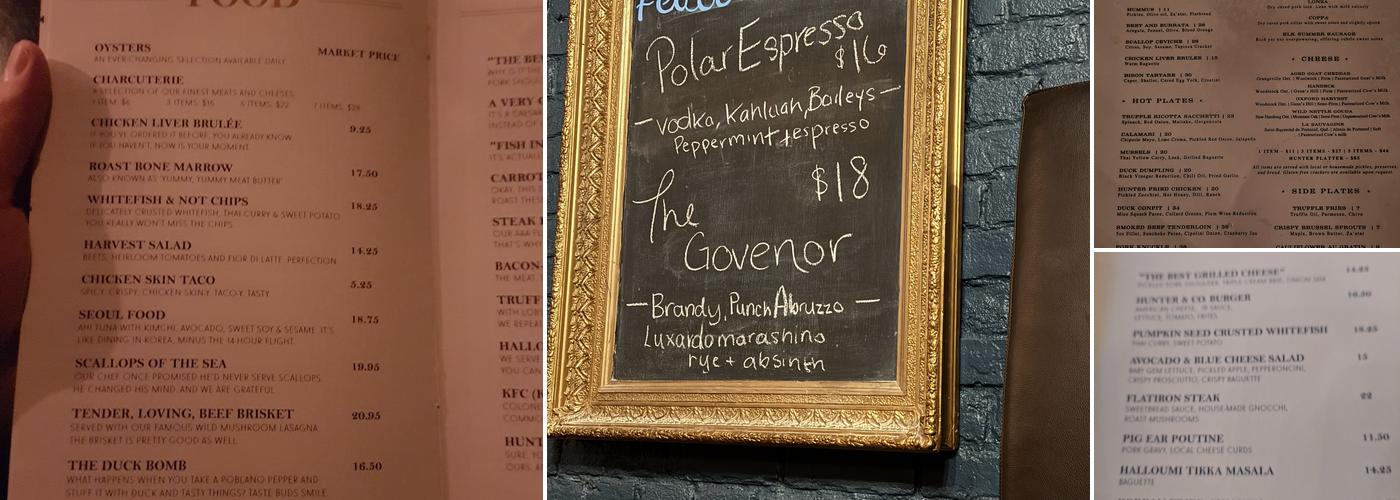 FOOD
OYSTERS MARKET PRICE
AN EVER-CHANGING SELECTION AVAILABLE DAILY
CHARCUTERIE
A SELECTION OF OUR FINEST MEATS AND CHEESES.
1 ITEM: $6 3 ITEMS: $16 6 ITEMS: $22 7 ITEMS: $28
CHICKEN LIVER BRULÉE 9.25
IF YOU'VE ORDERED IT BEFORE, YOU ALREADY KNOW.
IF YOU HAVEN'T, NOW IS YOUR MOMENT.
ROAST BONE MARROW 17.50
ALSO KNOWN AS 'YUMMY, YUMMY MEAT BUTTER'
WHITEFISH & NOT CHIPS 18.25
DELICATELY CRUSTED WHITEFISH, THAI CURRY & SWEET POTATO
YOU REALLY WON'T MISS THE CHIPS.
HARVEST SALAD 14.25
BEETS, HEIRLOOM TOMATOES AND FIOR DI LATTE. PERFECTION
CHICKEN SKIN TACO 5.25
SPICY. CRISPY. CHICKEN SKIN-Y. TACO-Y. TASTY
SEOUL FOOD 18.75
AHI TUNA WITH KIMCHI, AVOCADO, SWEET SOY & SESAME. IT'S
LIKE DINING IN KOREA, MINUS THE 14 HOUR FLIGHT.
SCALLOPS OF THE SEA 19.95
OUR CHEF ONCE PROMISED HE'D NEVER SERVE SCALLOPS.
HE CHANGED HIS MIND. AND WE ARE GRATEFUL.
TENDER, LOVING, BEEF BRISKET 20.95
SERVED WITH OUR FAMOUS WILD MUSHROOM LASAGNA.
THE BRISKET IS PRETTY GOOD AS WELL.
THE DUCK BOMB 16.50
WHAT HAPPENS WHEN YOU TAKE A POBLANO PEPPER AND
STUFF IT WITH DUCK AND TASTY THINGS? TASTE BUDS SMILE
"THE BES
A VERY C
"FISH IN
CARROT
STEAK
BACON-
TRUFF
HALLO
KFC (K
HUNT
Polar Espresso
$16
- vodka, Kahluah, Baileys -
Peppermint + espresso
$18
The
Govenor
- Brandy, Punch Abruzzo -
Luxardo marashino
rye + absinth
HUMMUS | 11
Pickles, Olive oil, Za'atar, Flatbread
BEET AND BURRATA | 26
Arugula, Fennel, Olive, Blood Orange
SCALLOP CEVICHE | 26
Citrus, Soy, Sesame, Tapioca Cracker
CHICKEN LIVER BRULEE | 15
Warm Baguette
BISON TARTARE | 30
Caper, Shallot, Cured Egg Yolk, Crostini
• HOT PLATES •
TRUFFLE RICOTTA SACCHETTI | 23
Spinach, Red Onion, Maitake, Gorgonzola
CALAMARI | 20
Chipotle Mayo, Lime Crema, Pickled Red Onion, Jalapeño
MUSSELS | 20
Thai Yellow Curry, Leek, Grilled Baguette
DUCK DUMPLING | 20
Black Vinegar Reduction, Chili Oil, Fried Garlic
HUNTER FRIED CHICKEN | 20
Pickled Zucchini, Hot Honey, Dill, Ranch
DUCK CONFIT | 34
Miso Squash Puree, Collard Greens, Plum Wine Reduction
SMOKED BEEF TENDERLOIN
PORK KNUCKLE
LONZA
Dry cured pork loin. Lean with mild salinity
COPPA
Dry cured pork collar with sweet notes and slightly spiced
ELK SUMMER SAUSAGE
Rich yet not overpowering, offering subtle sweet notes
• CHEESE •
AGED GOAT CHEDDAR
HANDECK
OXFORD HARVEST
WILD NETTLE GOUDA
LA SAUVAGINE
1 ITEM - $11 | 3 ITEMS - $27 | 5 ITEMS - $44
HUNTER PLATTER - $85
All items are served with local or homemade pickles, preserves,
and bread. Gluten free crackers are available upon request.
• SIDE PLATES •
TRUFFLE FRIES | 7
Truffle Oil, Parmesan, Chive
CRISPY BRUSSEL SPROUTS | 7
Maple, Brown Butter, Za'atar
CAULIFLOWER AU GRATIN
"THE BEST GRILLED CHEESE" 14.25
PICKLED PORK SHOULDER, TRIPLE CREAM BRIE, ONION JAM
HUNTER & CO. BURGER 16.50
AMERICAN CHEESE, SAUCE,
LETTUCE, TOMATO, FRITES
PUMPKIN SEED CRUSTED WHITEFISH 18.25
THAI CURRY, SWEET POTATO
AVOCADO & BLUE CHEESE SALAD 15
BABY GEM LETTUCE, PICKLED APPLE, PEPPERONCINI,
CRISPY PROSCIUTTO, CRISPY BAGUETTE
FLATIRON STEAK 22
SWEETBREAD SAUCE, HOUSE-MADE GNOCCHI,
ROAST MUSHROOMS
PIG EAR POUTINE 11.50
PORK GRAVY, LOCAL CHEESE CURDS
HALLOUMI TIKKA MASALA 14.25
BAGUETTE